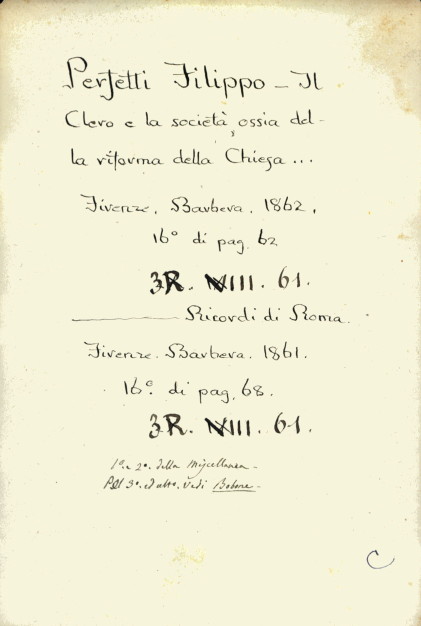 Perfetti Filippo - Il
Clero e la società, ossia del-
la riforma della Chiesa ...
Firenze, Barbera, 1862,
16° di pag. 62
3R. VIII. 61.
Ricordi di Roma.
Firenze. Barbera. 1861.
16°. di pag. 68.
3R. VIII. 61.
1°. e 2°. della Miscellanea -
Pel 3°. ed ult°. vedi
C